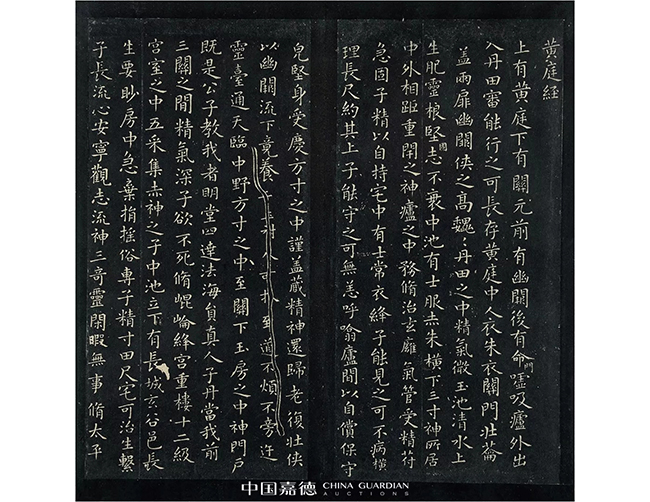 黄庭經
上有黄庭下有關元前有幽闕後有命門噓吸廬外出
入丹田審能行之可長存黄庭中人衣朱衣關門壯蘥
蓋兩扉幽闕俠之高魏〻丹田之中精氣微玉池清水上
生肥靈根堅固志不衰中池有士服赤朱橫下三寸神所居
中外相距重閉之神廬之中務脩治玄廱氣管受精符
急固子精以自持宅中有士常衣絳子能見之可不病橫
理長尺約其上子能守之可無恙呼噏廬間以自償保守
皃堅身受慶方寸之中謹蓋藏精神還歸老復壯俠
以幽闕流下竟養 道不煩不旁迕
靈臺通天臨中野方寸之中至關下玉房之中神門戶
既是公子教我者明堂四達法海員真人子丹當我前
三關之間精氣深子欲不死脩崐崘絳宫重樓十二級
宫室之中五采集赤神之子中池立下有長城玄谷邑長
生要眇房中急棄捐搖俗專子精寸田尺宅可治生繫
子長流心安寧觀志流神三奇靈閑暇無事脩太平
中国嘉德 CHINA GUARDIAN
AUCTIONS